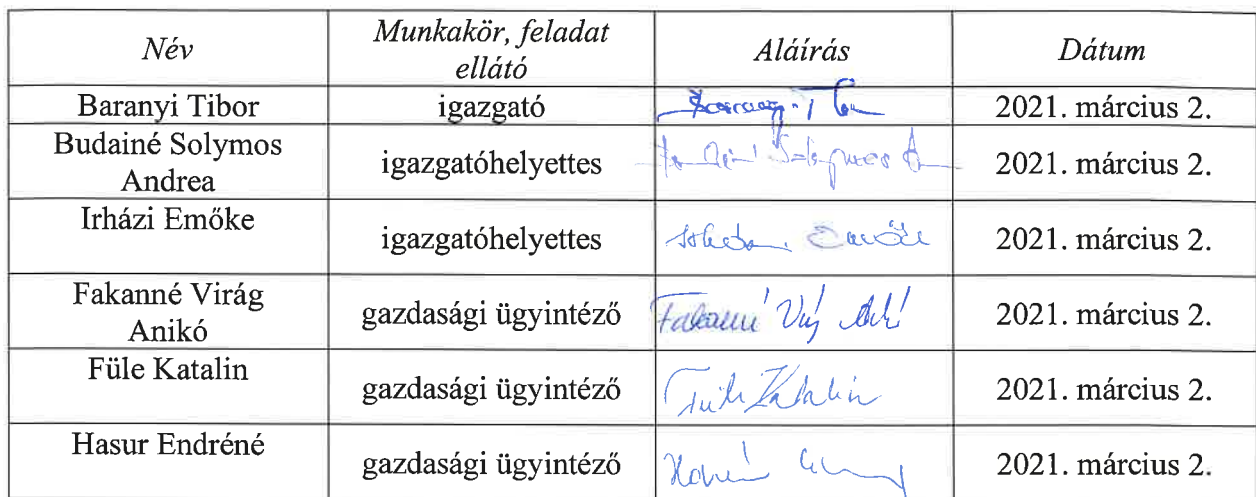 Név Munkakör, feladat ellátó Aláírás Dátum
Baranyi Tibor igazgató 2021. március 2.
Budainé Solymos Andrea igazgatóhelyettes 2021. március 2.
Irházi Emőke igazgatóhelyettes Emőke 2021. március 2.
Fakanné Virág Anikó gazdasági ügyintéző Fakanné 2021. március 2.
Füle Katalin gazdasági ügyintéző Füle Katalin 2021. március 2.
Hasur Endréné gazdasági ügyintéző 2021. március 2.